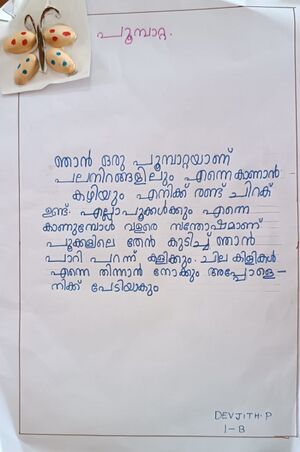 പൂമ്പാറ്റ.
ഞാൻ ഒരു പൂമ്പാറ്റയാണ്
പലനിറങ്ങളിലും എന്നെ കാണാൻ
കഴിയും എനിക്ക് രണ്ട് ചിറക്
ഉണ്ട് എല്ലാപൂക്കൾക്കും എന്നെ
കാണുമ്പോൾ വളരെ സന്തോഷമാണ്
പൂക്കളിലെ തേൻ കുടിച്ച് ഞാൻ
പാറി പറന്ന് കളിക്കും. ചില കിളികൾ
എന്നെ തിന്നാൻ നോക്കും അപ്പോളെ-
നിക്ക് പേടിയാകും
DEVJITH.P
1-B